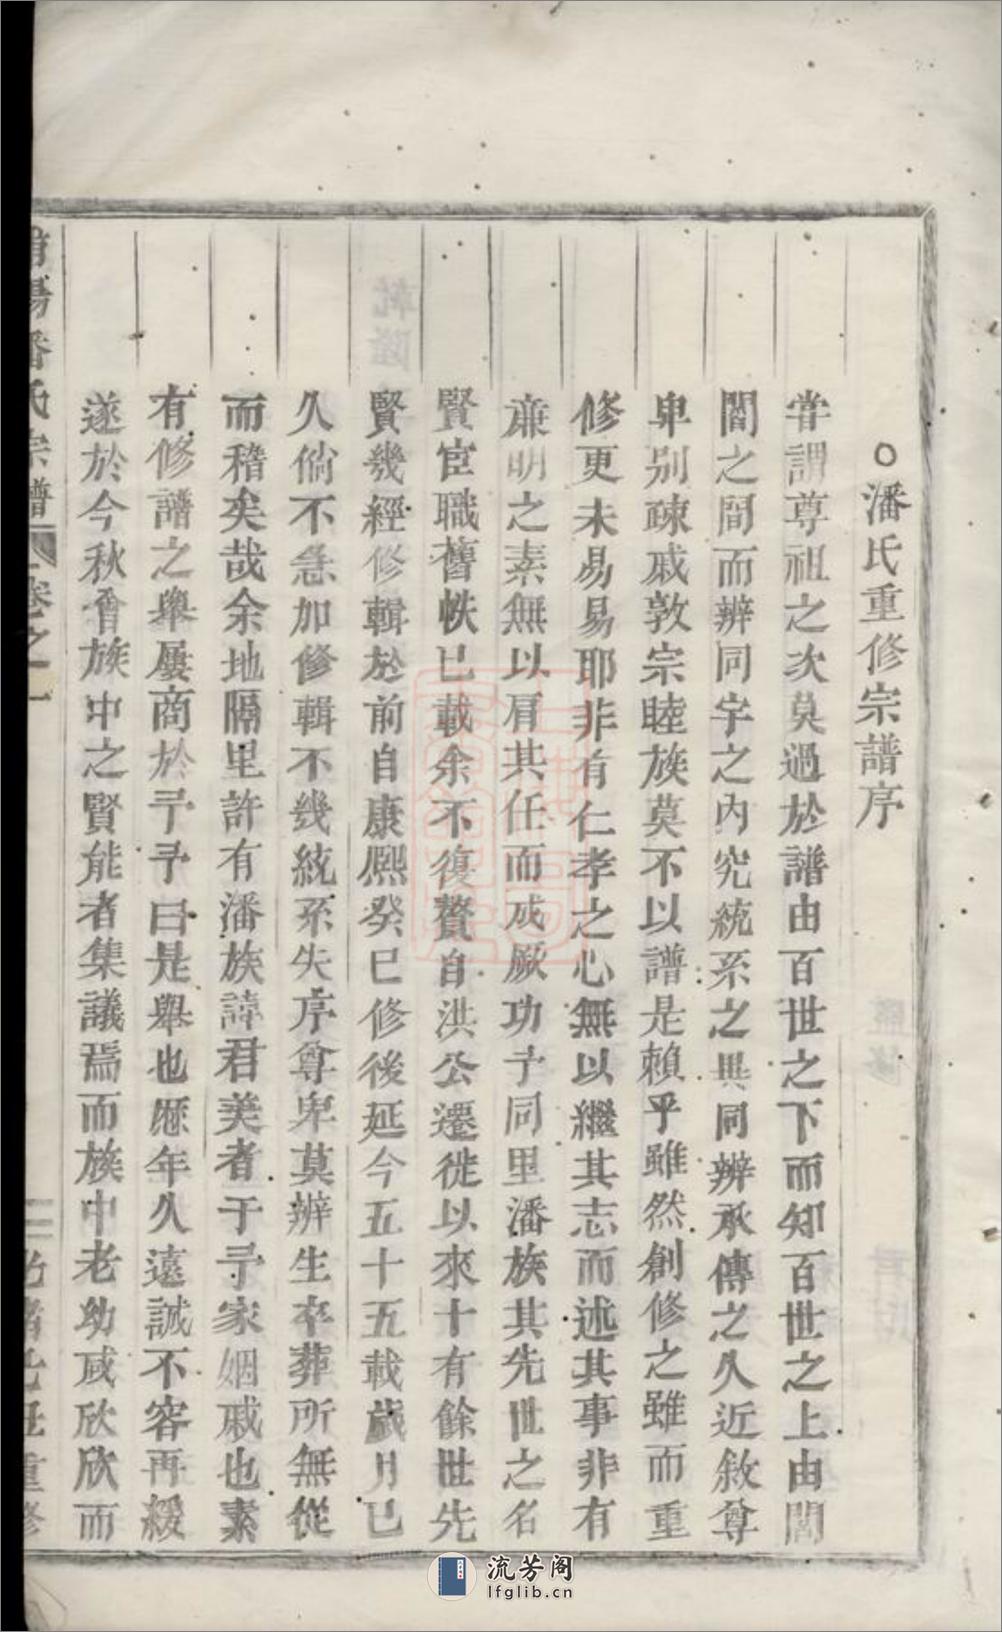 ○潘氏重修宗譜序
甞謂尊祖之次莫過於譜由百世之下而知百世之上由閭
閻之間而辨同宇之內究統系之異同辨承傳之久近敘尊
卑別疎戚敦宗睦族莫不以譜是賴乎雖然創修之難而重
修更未易易耶非有仁孝之心無以繼其志而述其事非有
亷明之素無以肩其任而成厥功予同里潘族其先世之名
賢宦職舊帙已載余不復贅自洪公遷徙以來十有餘世先
賢幾經修輯於前自康熙癸巳修後延今五十五載歲月已
久倘不急加修輯不幾統系失序尊卑莫辨生卒葬所無從
而稽矣哉余地隔里許有潘族諱君美者于予家姻戚也素
有修譜之舉屢商於予予曰是舉也歷年久遠誠不容再緩
遂於今秋會族中之賢能者集議焉而族中老幼咸欣欣而
陽潘氏宗譜 卷之一 重修
流芳阁
lfglib.cn